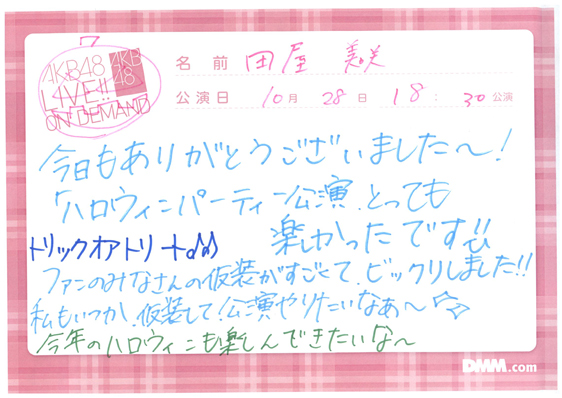 AKB48
LIVE!!
ON DEMAND
AKB
48
名前 田屋 美咲
公演日 10月 28日 18:30公演
今日もありがとうございました〜!
「ハロウィンパーティー」公演、とっても
楽しかったです!!
トリックオアトリート♪
ファンのみなさんの仮装がすごくて、ビックリしました!!
私もいつか、仮装して公演やりたいなあ〜☆
今年のハロウィンも楽しんできたいな〜
DMM.com